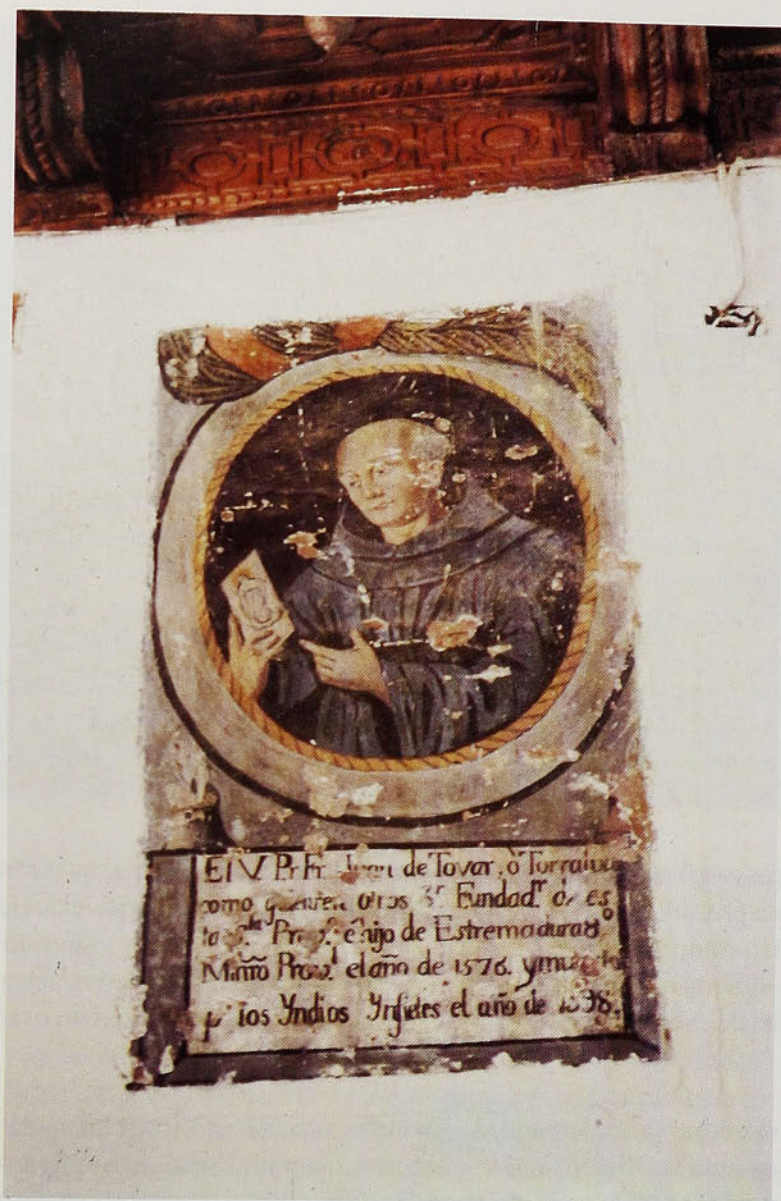 El V. P.r Fr. Juan de Tovar, ò Torralva
como quieren otros Fundad.r de es
ta S.ta Prov.a è hijo de Estremadura
Mintrõ Prov.l el año de 1576. y muerto
p.r los Yndios Ynfieles el año de